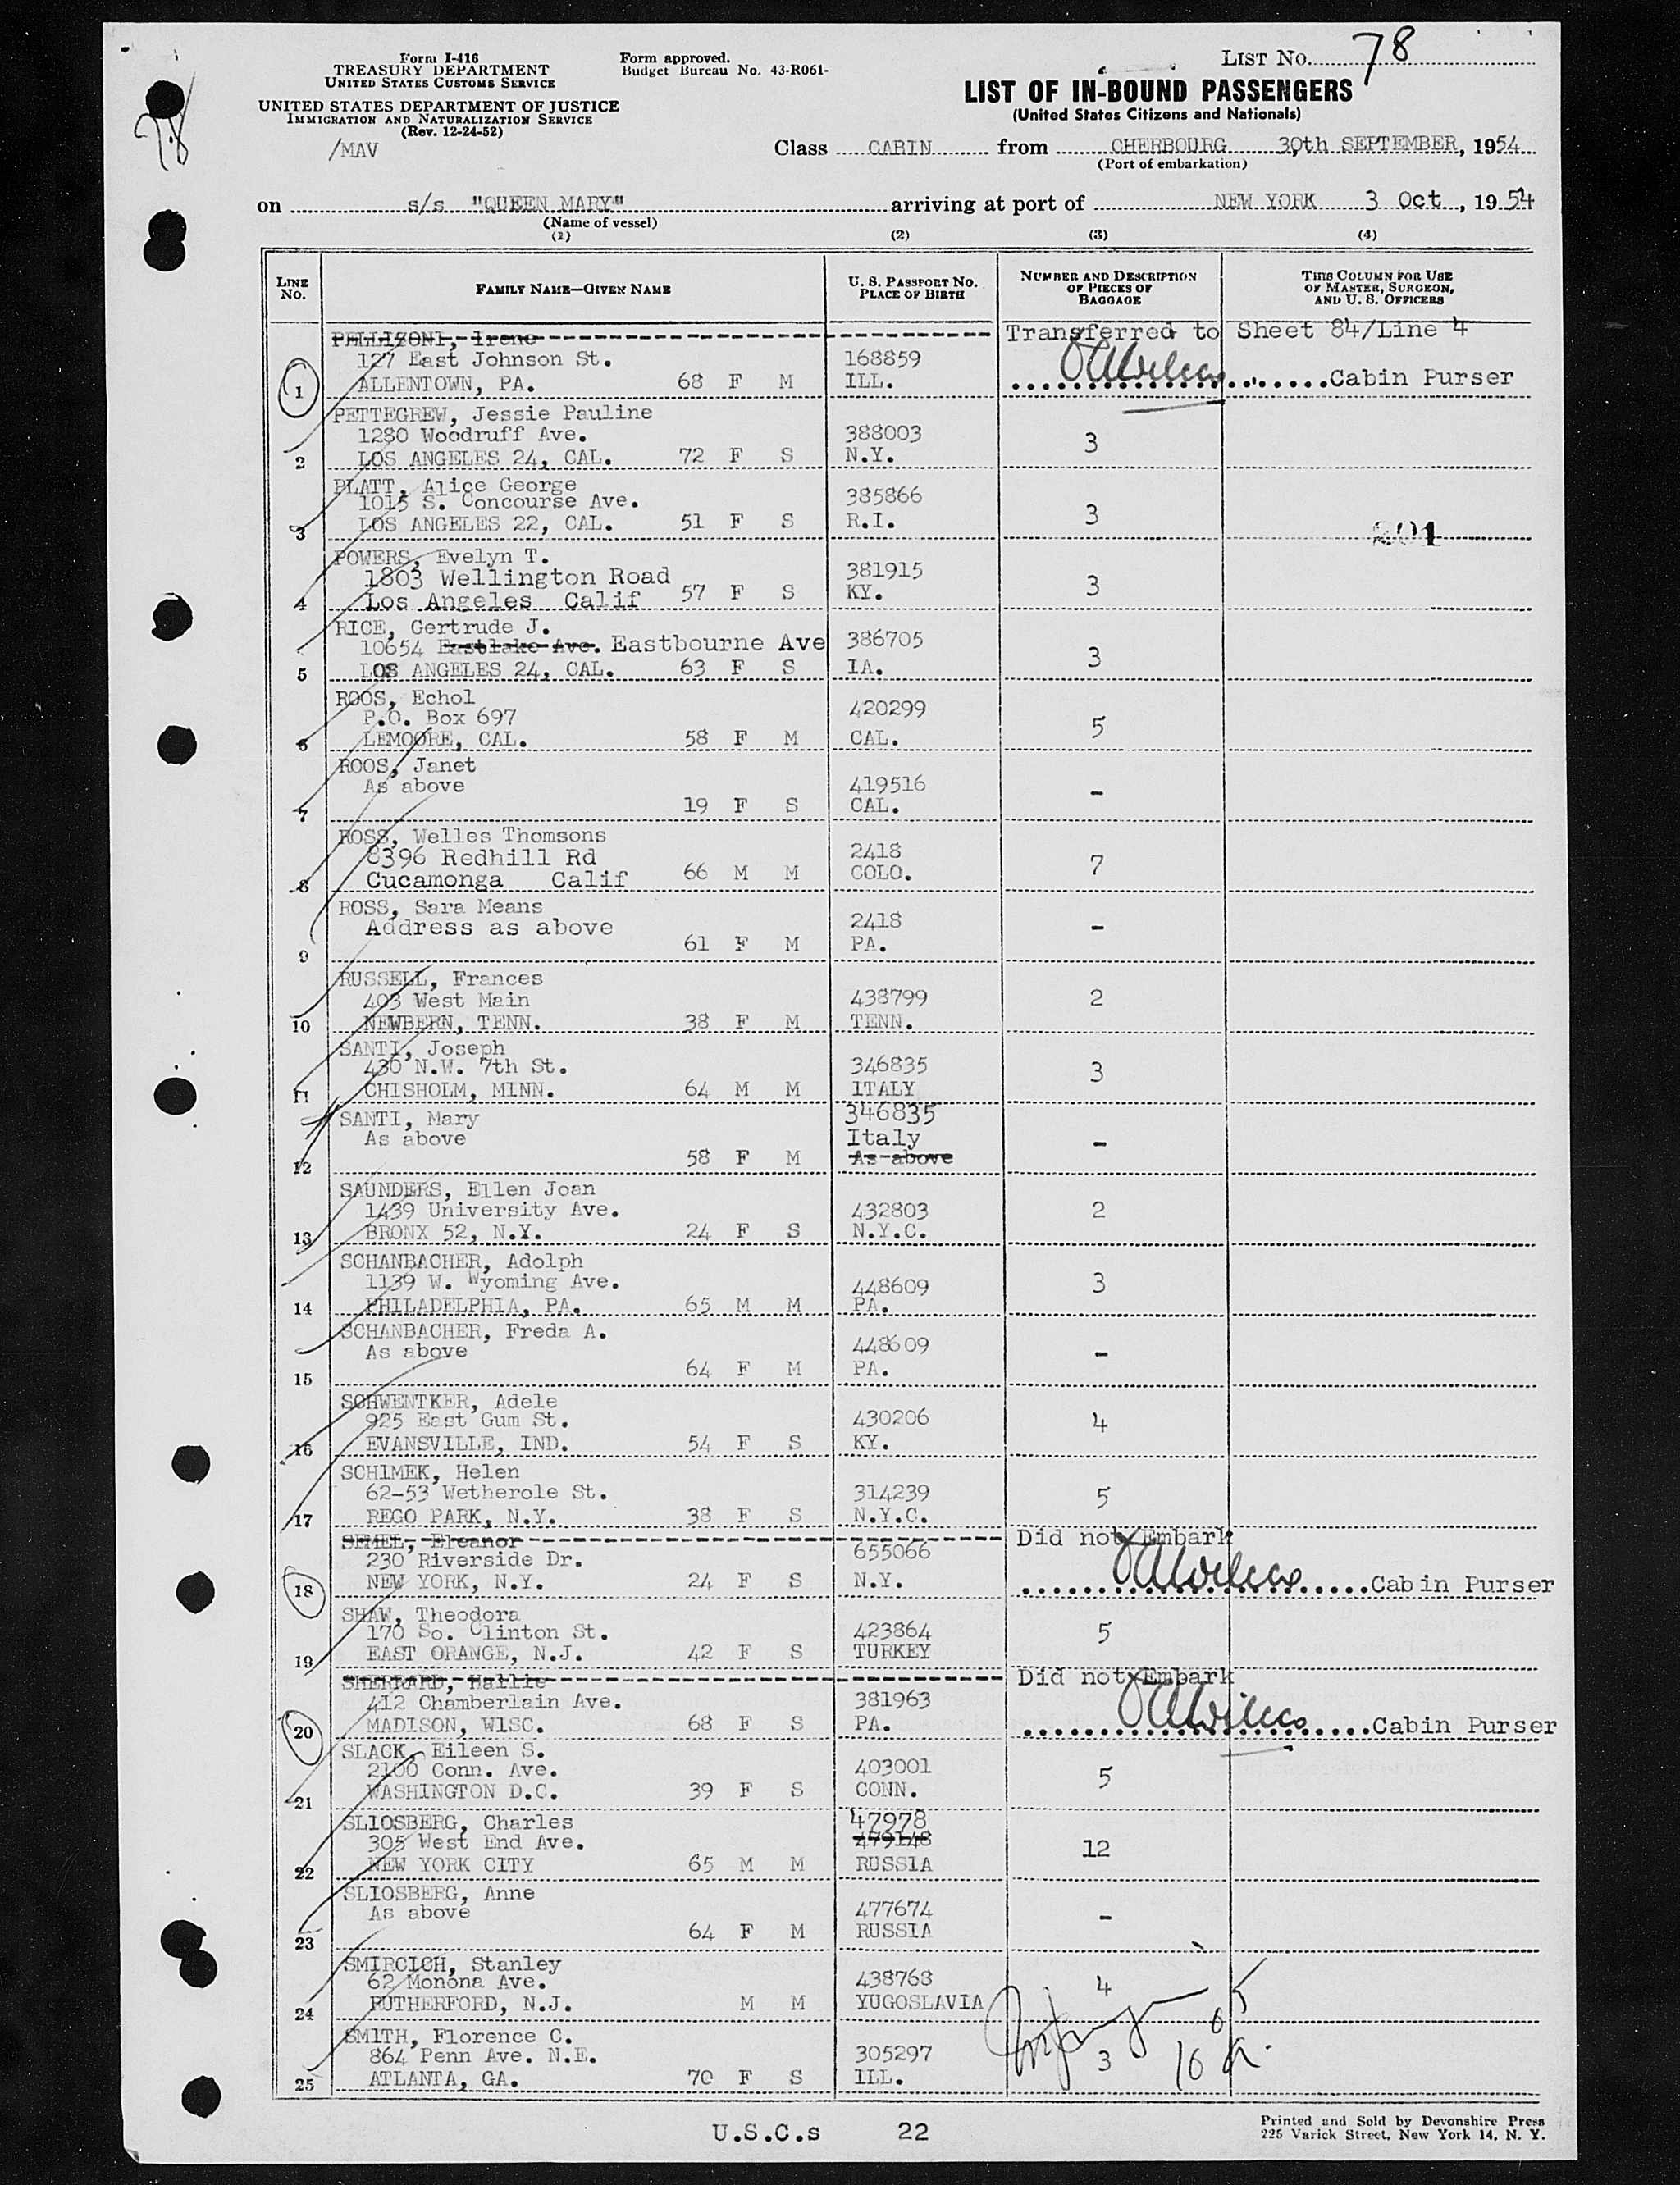 78
Form I-416
TREASURY DEPARTMENT
UNITED STATES CUSTOMS SERVICE
UNITED STATES DEPARTMENT OF JUSTICE
IMMIGRATION AND NATURALIZATION SERVICE
(Rev. 12-24-52)
/MAV
Form approved.
Budget Bureau No. 43-R061-
LIST NO. 78
LIST OF IN-BOUND PASSENGERS
(United States Citizens and Nationals)
Class CABIN from CHERBOURG 30th SEPTEMBER, 1954
(Port of embarkation)
on s/s "QUEEN MARY" arriving at port of NEW YORK 3 Oct, 1954
(Name of vessel)
(1) (2) (3) (4)
LINE NO. FAMILY NAME—GIVEN NAME U. S. PASSPORT NO. PLACE OF BIRTH NUMBER AND DESCRIPTION OF PIECES OF BAGGAGE THIS COLUMN FOR USE OF MASTER, SURGEON, AND U. S. OFFICERS
PELLIZONI, Irene Transferred to Sheet 84/Line 4
127 East Johnson St. 168859
1 ALLENTOWN, PA. 68 F M ILL. Cabin Purser
PETTEGREW, Jessie Pauline
1280 Woodruff Ave. 388003 3
2 LOS ANGELES 24, CAL. 72 F S N.Y.
PLATT, Alice George
1015 S. Concourse Ave. 385866 3
3 LOS ANGELES 22, CAL. 51 F S R.I. 201
POWERS, Evelyn T.
1803 Wellington Road 381915 3
4 Los Angeles Calif 57 F S KY.
RICE, Gertrude J.
10654 Eastlake Ave. Eastbourne Ave 386705 3
5 LOS ANGELES 24, CAL. 63 F S IA.
ROOS, Echol
P.O. Box 697 420299 5
6 LEMOORE, CAL. 58 F M CAL.
ROOS, Janet
As above 419516 -
7 19 F S CAL.
ROSS, Welles Thomsons
8396 Redhill Rd 2418 7
8 Cucamonga Calif 66 M M COLO.
ROSS, Sara Means
Address as above 2418 -
9 61 F M PA.
RUSSELL, Frances
403 West Main 438799 2
10 NEWBERN, TENN. 38 F M TENN.
SANTI, Joseph
430 N.W. 7th St. 346835 3
11 CHISHOLM, MINN. 64 M M ITALY
SANTI, Mary 346835
As above Italy -
12 58 F M As above
SAUNDERS, Ellen Joan
1439 University Ave. 432803 2
13 BRONX 52, N.Y. 24 F S N.Y.C.
SCHANBACHER, Adolph
1139 W. Wyoming Ave. 448609 3
14 PHILADELPHIA, PA. 65 M M PA.
SCHANBACHER, Freda A.
As above 448609 -
15 64 F M PA.
SCHWENTKER, Adele
925 East Gum St. 430206 4
16 EVANSVILLE, IND. 54 F S KY.
SCHIMEK, Helen
62-53 Wetherole St. 314239 5
17 REGO PARK, N.Y. 38 F S N.Y.C.
SEMEL, Eleanor Did not Embark
230 Riverside Dr. 655066
18 NEW YORK, N.Y. 24 F S N.Y. Cabin Purser
SHAW, Theodora
170 So. Clinton St. 423864 5
19 EAST ORANGE, N.J. 42 F S TURKEY
SHERRARD, Hallie Did not Embark
412 Chamberlain Ave. 381963
20 MADISON, WISC. 68 F S PA. Cabin Purser
SLACK, Eileen S.
2100 Conn. Ave. 403001 5
21 WASHINGTON D.C. 39 F S CONN.
SLIOSBERG, Charles 47978
305 West End Ave. 479148 12
22 NEW YORK CITY 65 M M RUSSIA
SLIOSBERG, Anne
As above 477674 -
23 64 F M RUSSIA
SMIRCICH, Stanley
62 Monona Ave. 438768 4
24 RUTHERFORD, N.J. M M YUGOSLAVIA
SMITH, Florence C.
864 Penn Ave. N.E. 305297 3
25 ATLANTA, GA. 70 F S ILL.
U.S.C.s 22
Printed and Sold by Devonshire Press
225 Varick Street, New York 14, N. Y.